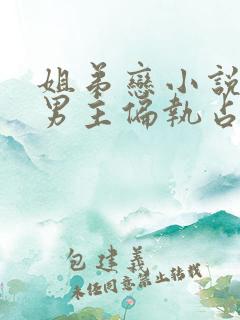 姐弟戀小說
男主偏執占
包建義
未任同意禁止转载